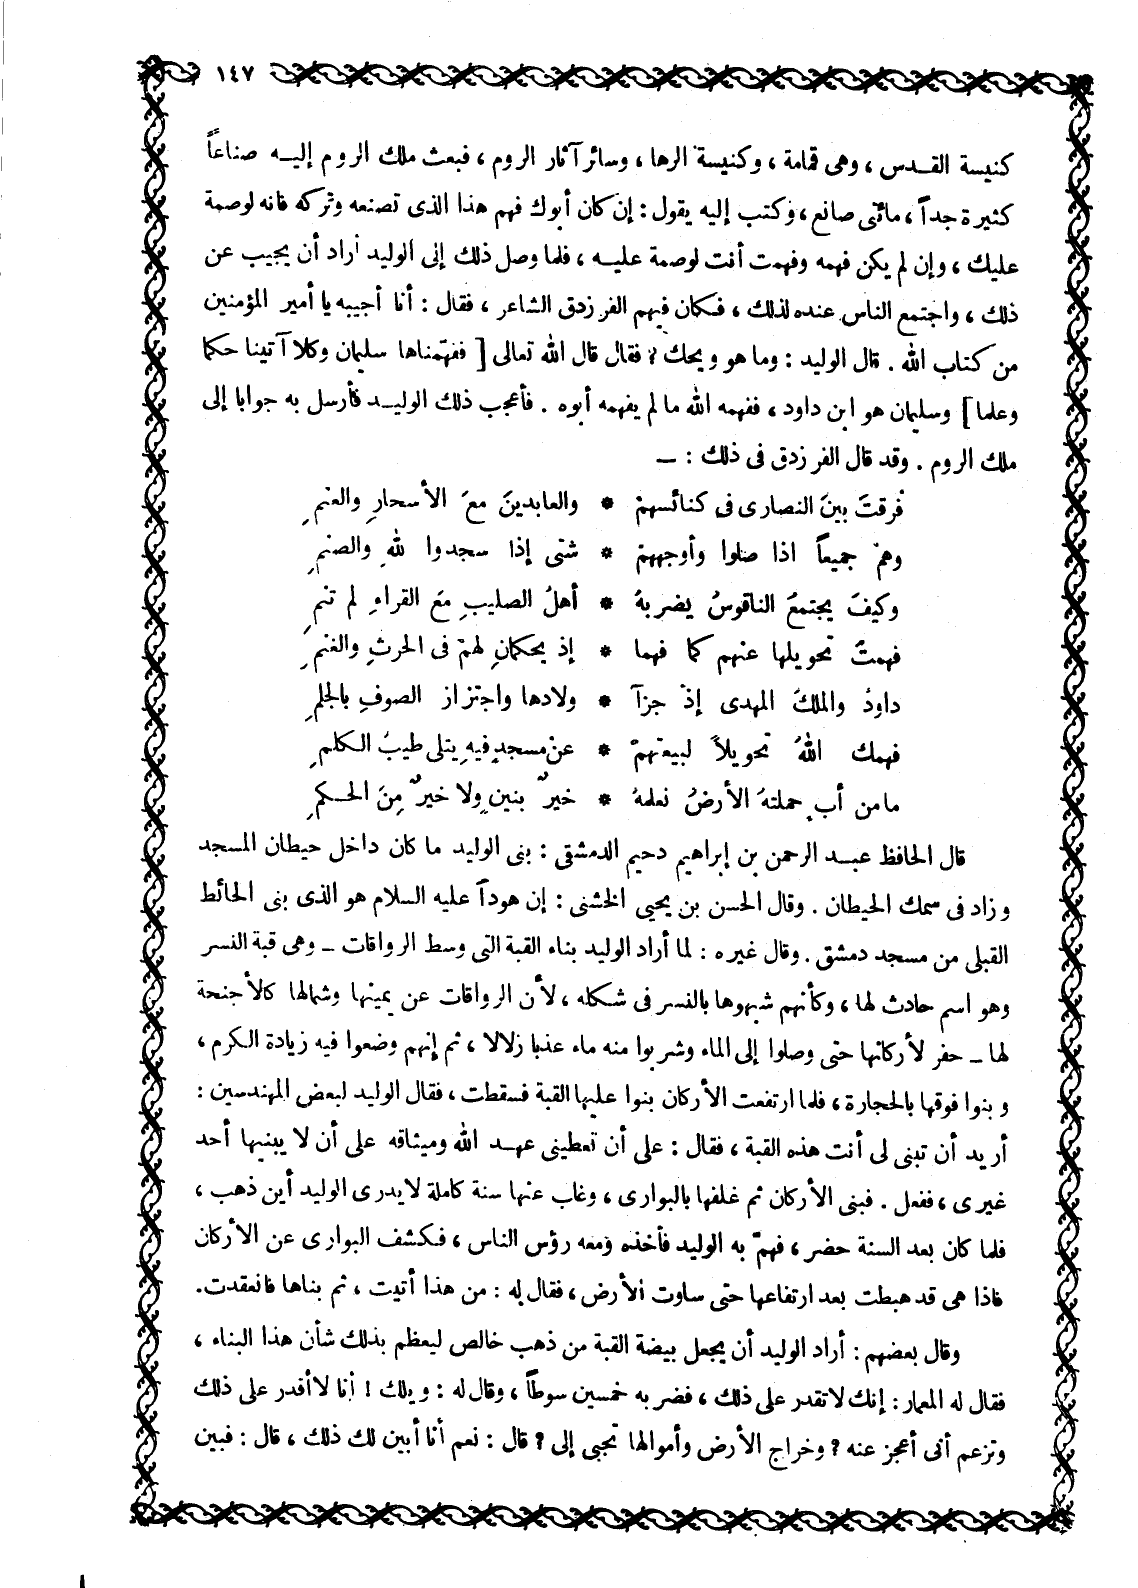 ١٤٧
كنيسة القدس ، وهى قمامة ، وكنيسة الرها ، وسائر آثار الروم ، فبعث ملك الروم إليه صناعاً
كثيرة جداً ، مائتى صانع ، وكتب إليه يقول : إن كان أبوك فهم هذا الذى تصنعه وتركه فانه لوصمة
عليك ، وإن لم يكن فهمه وفهمت أنت لوصمة عليه ، فلما وصل ذلك إلى الوليد أراد أن يجيب عن
ذلك ، واجتمع الناس عنده لذلك ، فكان فيهم الفرزدق الشاعر ، فقال : أنا أجيبه يا أمير المؤمنين
من كتاب الله . قال الوليد : وما هو ويحك ؟ فقال قال الله تعالى [ ففهمناها سليمان وكلا آتينا حكما
وعلما ] وسليمان هو ابن داود ، ففهمه الله ما لم يفهمه أبوه . فأعجب ذلك الوليد فأرسل به جوابا إلى
ملك الروم . وقد قال الفرزدق فى ذلك : ــ
فرقتَ بينَ النصارى فى كنائسهمْ * والعابدينَ معَ الأسحارِ والعتمِ
وهمْ جميعاً اذا صلوا وأوجههمْ * شتى إذا سجدوا للهِ والصنمِ
وكيفَ يجتمعُ الناقوسُ يضربهُ * أهلُ الصليبِ معَ القراءِ لم تنمِ
فهمتَ تحويلها عنهم كما فهما * إذ يحكمانِ لهمْ فى الحرثِ والغنمِ
داودُ والملكُ المهدى إذْ جزآ * ولادها واجتزاز الصوفِ بالجلمِ
فهمك اللهُ تحويلاً لبيعتهمْ * عنْ مسجدٍ فيهِ يتلى طيبُ الكلمِ
مامن أبٍ حملتهُ الأرضُ نعلمهُ * خيرٌ بنينٍ ولا خيرٌ مِنَ الحكمِ
قال الحافظ عبد الرحمن بن إبراهيم دحيم الدمشقى : بنى الوليد ما كان داخل حيطان المسجد
وزاد فى سمك الحيطان . وقال الحسن بن يحيى الخشنى : إن هوداً عليه السلام هو الذى بنى الحائط
القبلى من مسجد دمشق . وقال غيره : لما أراد الوليد بناء القبة التى وسط الرواقات ــ وهى قبة النسر
وهو اسم حادث لها ، وكأنهم شبهوها بالنسر فى شكله ، لأن الرواقات عن يمينها وشمالها كالأجنحة
لها ــ حفر لأركانها حتى وصلوا إلى الماء وشربوا منه ماء عذبا زلالا ، ثم إنهم وضعوا فيه زيادة الكرم ،
وبنوا فوقها بالحجارة ، فلما ارتفعت الأركان بنوا عليها القبة فسقطت ، فقال الوليد لبعض المهندسين :
أريد أن تبنى لى أنت هذه القبة ، فقال : على أن تعطينى عهد الله وميثاقه على أن لا يبنيها أحد
غيرى ، ففعل . فبنى الأركان ثم غلفها بالبوارى ، وغاب عنها سنة كاملة لايدرى الوليد أين ذهب ،
فلما كان بعد السنة حضر ، فهمّ به الوليد فأخذه ومعه رؤس الناس ، فكشف البوارى عن الأركان
فاذا هى قد هبطت بعد ارتفاعها حتى ساوت الأرض ، فقال له : من هذا أتيت ، ثم بناها فانعقدت.
وقال بعضهم : أراد الوليد أن يجعل بيضة القبة من ذهب خالص ليعظم بذلك شأن هذا البناء ،
فقال له المعمار : إنك لا تقدر على ذلك ، فضربه خمسين سوطاً ، وقال له : ويلك ! أنا لا أقدر على ذلك
وتزعم أنى أعجز عنه ؟ وخراج الأرض وأموالها تجبى إلى ؟ قال : نعم أنا أبين لك ذلك ، قال : فبين